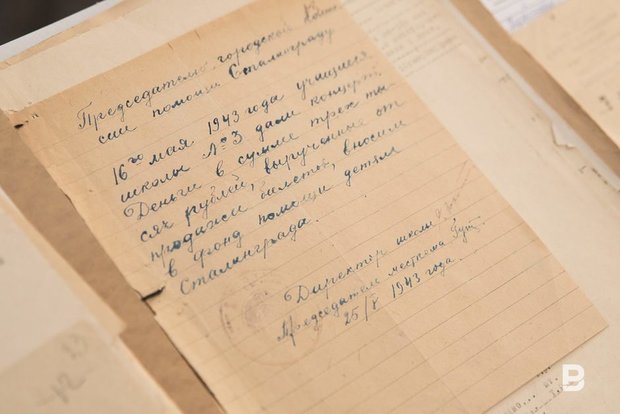 Председателю городской Комис
сии помощи Сталинграду
16го мая 1943 года учащиеся
школы №3 дали концерт.
Деньги в сумме трех ты
сяч рублей, вырученные от
продажи билетов, вносим
в фонд помощи детям
Сталинграда.
Директор школы
Председатель месткома Гут
25/V 1943 года
B